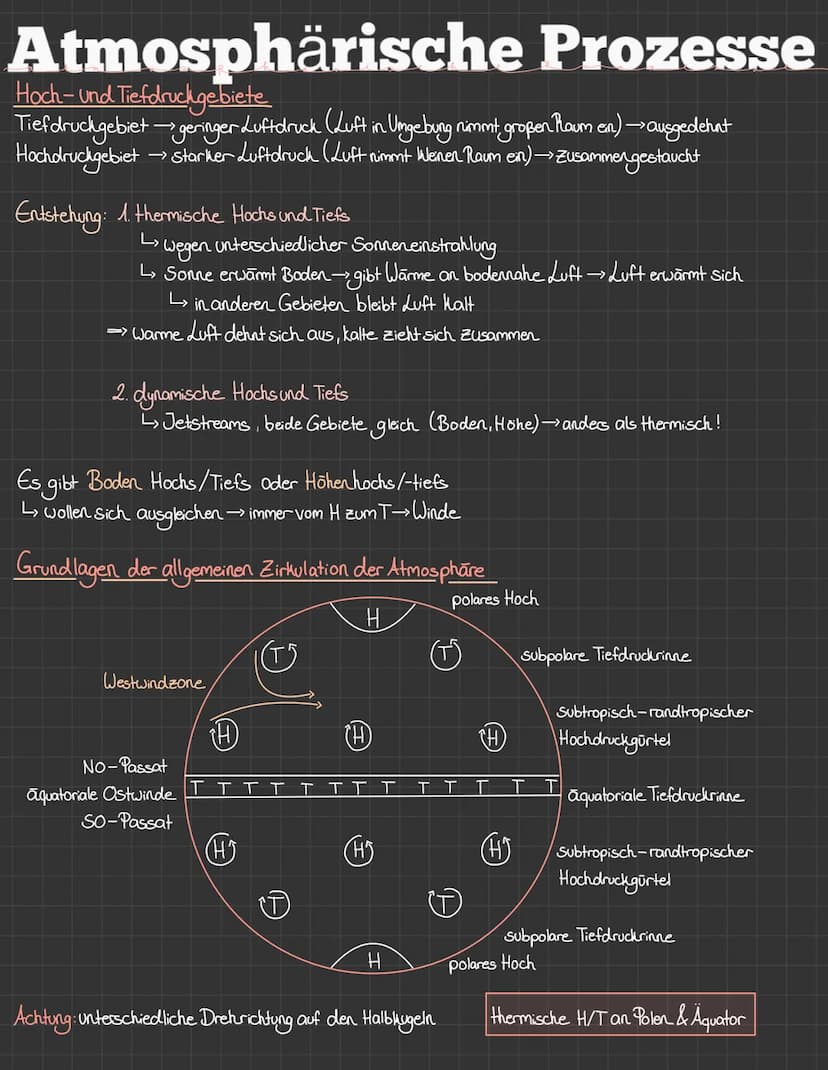 Atmosphärische Prozesse
Hoch- und Tiefdruckgebiete
Tiefdruckgebiet → geringer Luftdruck (Luft in Umgebung nimmt großen Raum ein) → ausgedehnt
Hochdruckgebiet → starker Luftdruck (Luft nimmt kleinen Raum ein) → zusammengestaucht
Entstehung: 1. thermische Hochs und Tiefs
↳ wegen unterschiedlicher Sonneneinstrahlung
↳ Sonne erwärmt Boden → gibt Wärme an bodennahe Luft → Luft erwärmt sich
↳ in anderen Gebieten bleibt Luft kalt
⇒ warme Luft dehnt sich aus, kalte zieht sich zusammen
2. dynamische Hochs und Tiefs
↳ Jetstreams, beide Gebiete gleich (Boden, Höhe) → anders als thermisch!
Es gibt Boden Hochs/Tiefs oder Höhenhochs/-tiefs
↳ wollen sich ausgleichen → immer vom H zum T → Winde
Grundlagen der allgemeinen Zirkulation der Atmosphäre
polares Hoch
H
T T
subpolare Tiefdruckrinne
Westwindzone
subtropisch-randtropischer
Hochdruckgürtel
H H H
NO-Passat
äquatoriale Ostwinde
SO-Passat
T T T T T T T T T T T T T
äquatoriale Tiefdruckrinne
H H H
subtropisch-randtropischer
Hochdruckgürtel
T T
subpolare Tiefdruckrinne
H
polares Hoch
Achtung: unterschiedliche Drehrichtung auf den Halbkugeln
thermische H/T an Polen & Äquator